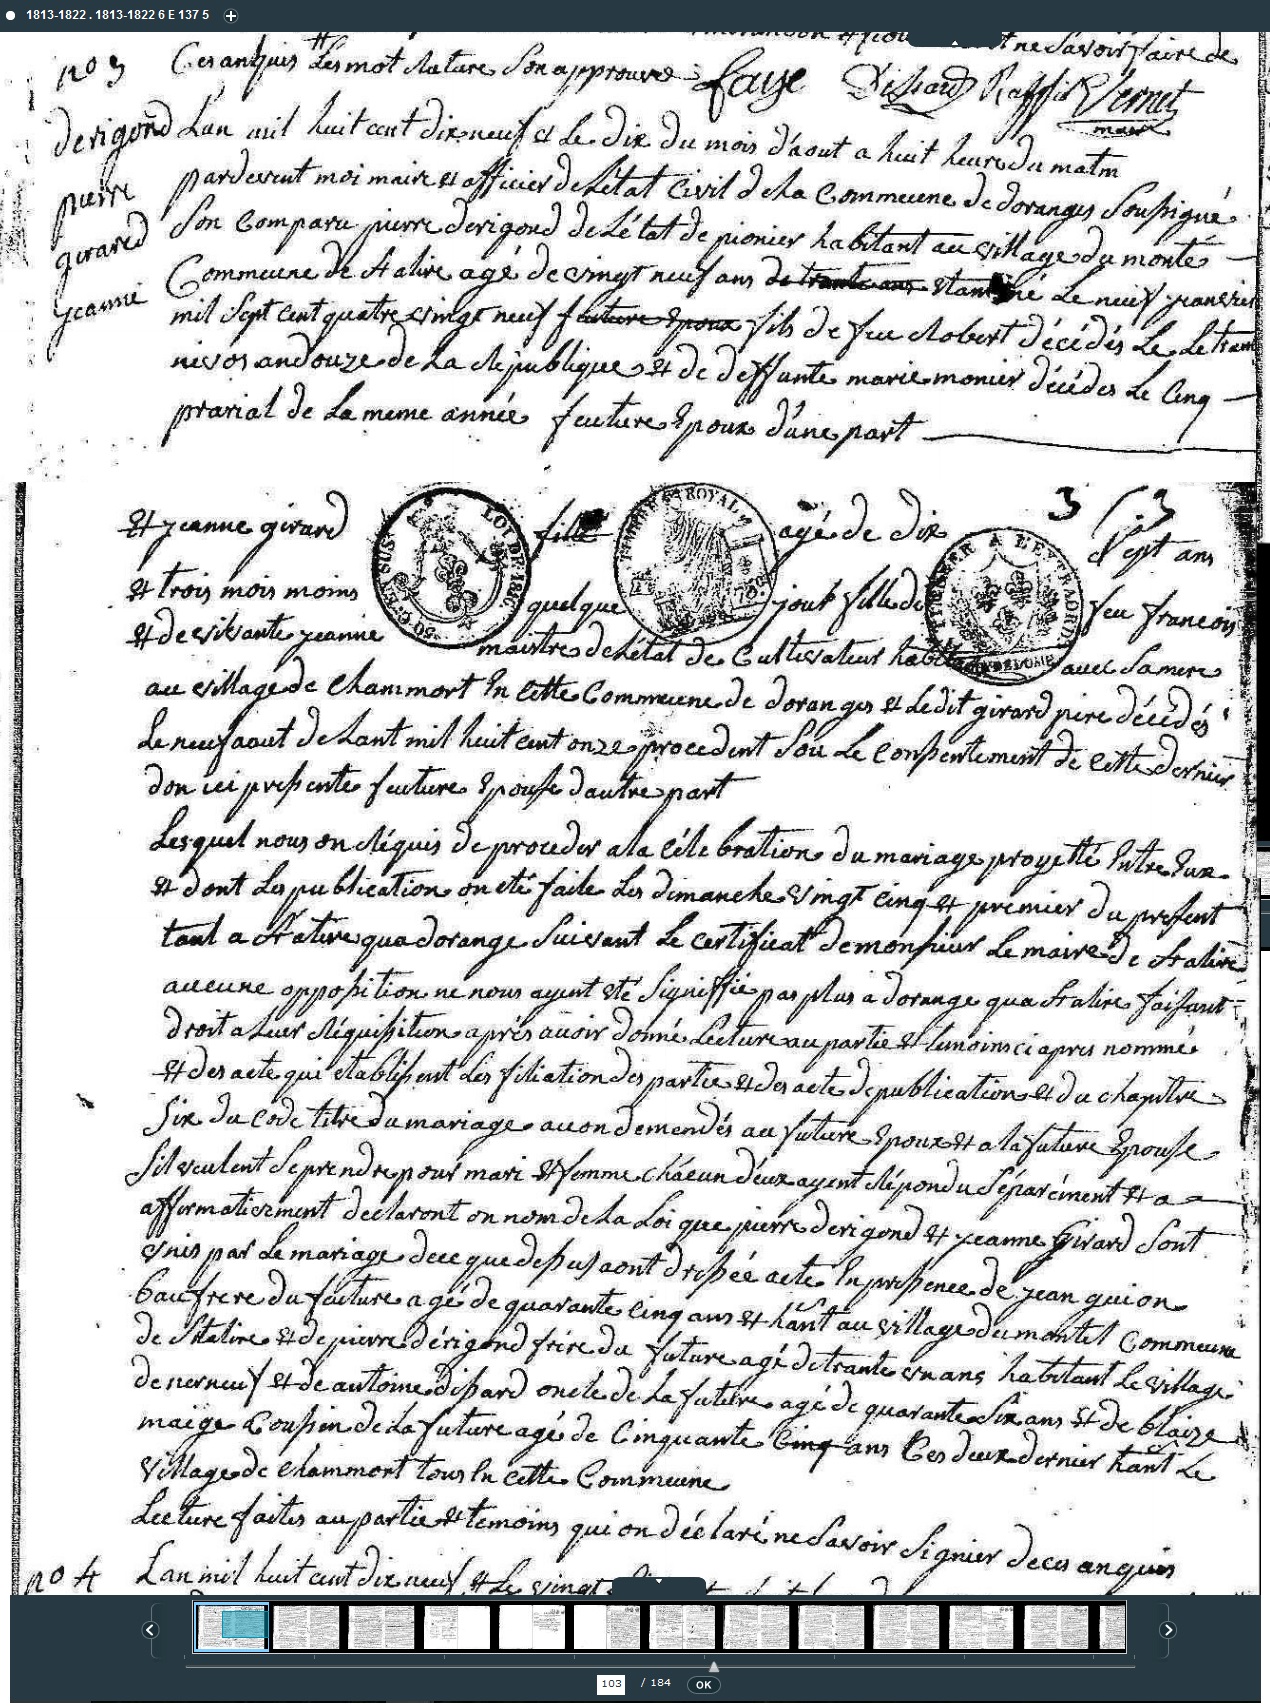 1813-1822 . 1813-1822 6 E 137 5
ne Savoir faire de
n° 3
Ces anquis Les mot Rature Son approuvé faye Dissard Raffin Vernet
maire
derigond
pierre
girard
jeanne
Lan mil huit cent dix neuf et Le dix du mois d'aout a huit heure du matin
pardevent moi maire et officier de Létat Civil de La Commeune de doranges Soussigné
Son Comparu pierre derigond de Létat de pionier habitant au village du monté
Commeune de St alire agé de vingt neuf ans de trante ans etant né Le neuf janvier
mil Sept cent quatre vingt neuf feuture Epoux fils de feu Robert décédés Le Le trant
nivos an douze de La République et de deffunte marie monier décédes Le Cinq
prarial de La meme année feuture Epoux d'une part
3
et jeanne girard fille agé de dix Sept ans
TIMBRE ROYAL
LOI DE
et trois mois moins quelque jour fille de feu francois
et de vivante jeanne maistre de Létat de Cultivateur avec Sa mere
au village de Chammort En Cette Commeune de doranges et Ledit girard pere décédés
Le neuf aout de Lant mil huit cent onze procedent Sou Le Consentement de Cette dernier
don ici presente feuture Epouse dautre part
Lesquel nous on Réquis de proceder a la Célebration du mariage proyetté Entre Eux
et dont Les publication on eté faite Les dimanche vingt cinq et premier du present
tant a St alire qua dorange Suivant Le Certificat de monsieur Le maire de St alire
aucune opposition ne nous ayent eté Signiffié pas plus a dorange qua St alire faisant
droit a Luer Réquisition aprés avoir donné Lecture au partie et temoins ci apres nommé
et des acte qui etablissent Les filiation des partie et des acte de publication et du chapitre
Six du Code titre du mariage avon demendés au future Epoux et a la future Epouse
Sil veulent Se prendre pour mari et femme chacun deux ayent Répondu Séparément et a
affirmativement declaront on nom de La Loi que pierre derigond et jeanne Girard Sont
unis par Le mariage de ce que dessus avont dressée acte En presence de jean guion
baufrere du future agé de quarante cinq ans et hant au village du montel Commeune
de St alire et de pierre dérigond frere du future agé de trante un ans habitant Le village
de nerneuf et de antoine dissard oncle de La future agé de quarante Six ans et de blaize
maige Cousin de La future agé de Cinquante Cinq ans Ces deux dernier hant Le
Village de Chammort tous En Cette Commeune
Lecture faites au partie et temoins qui on déclaré ne Savoir Signier de ces anquis
n° 4
Lan mil huit cent dix neuf et Le vingt
103 / 184 OK